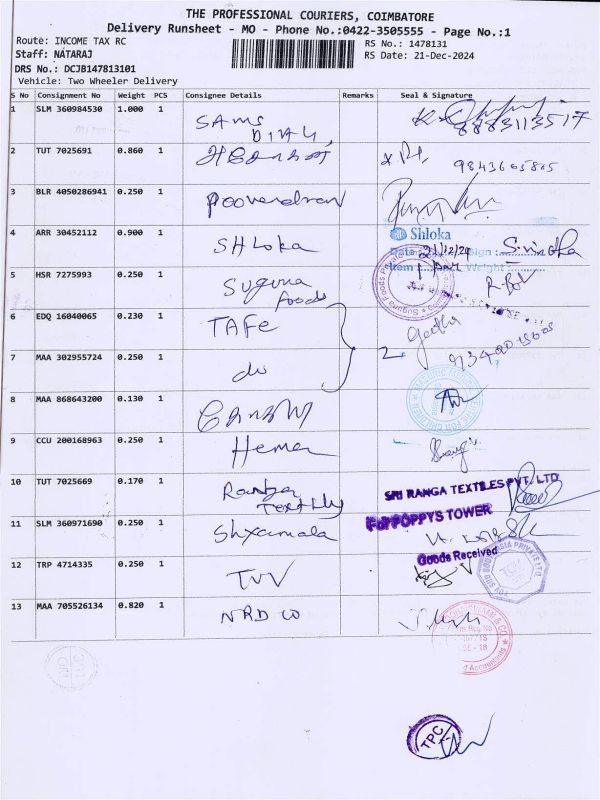 THE PROFESSIONAL COURIERS, COIMBATORE
Delivery Runsheet - MO - Phone No.:0422-3505555 - Page No.:1
Route: INCOME TAX RC
RS No.: 1478131
Staff: NATARAJ
RS Date: 21-Dec-2024
DRS No.: DCJB147813101
Vehicle: Two Wheeler Delivery
S No Consignment No Weight PCS Consignee Details Remarks Seal & Signature
1 SLM 360984530 1.000 1 SAMS 8883113517
2 TUT 7025691 0.860 1 9843605805
3 BLR 4050286941 0.250 1 Pooverdran
4 ARR 30452112 0.900 1 SHLoka Shloka
Date 21/12/24 Sign
Item Weight
5 HSR 7275993 0.250 1 Suguna
foods
6 EDQ 16040065 0.230 1 TAFE Geetha
7 MAA 302955724 0.250 1 do 2
8 MAA 868643200 0.130 1
9 CCU 200168963 0.250 1 Hema
10 TUT 7025669 0.170 1 Ranga SRI RANGA TEXTILES PVT. LTD
Textily
11 SLM 360971690 0.250 1 Shyamala For POPPYS TOWER
Goods Received
12 TRP 4714335 0.250 1 TUV
13 MAA 705526134 0.820 1 NRD
TPC